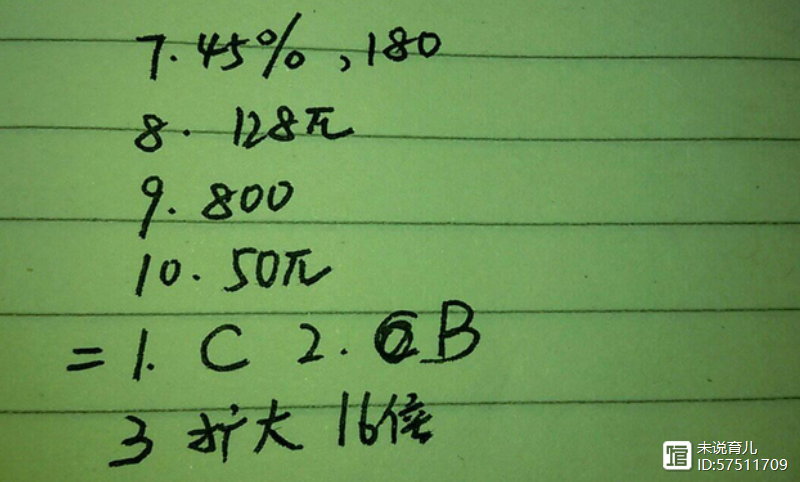 7. 45%,180
8. 128π
9. 800
10. 50π
二 1. C 2. B
3 扩大 16倍
未说育儿
ID:57511709